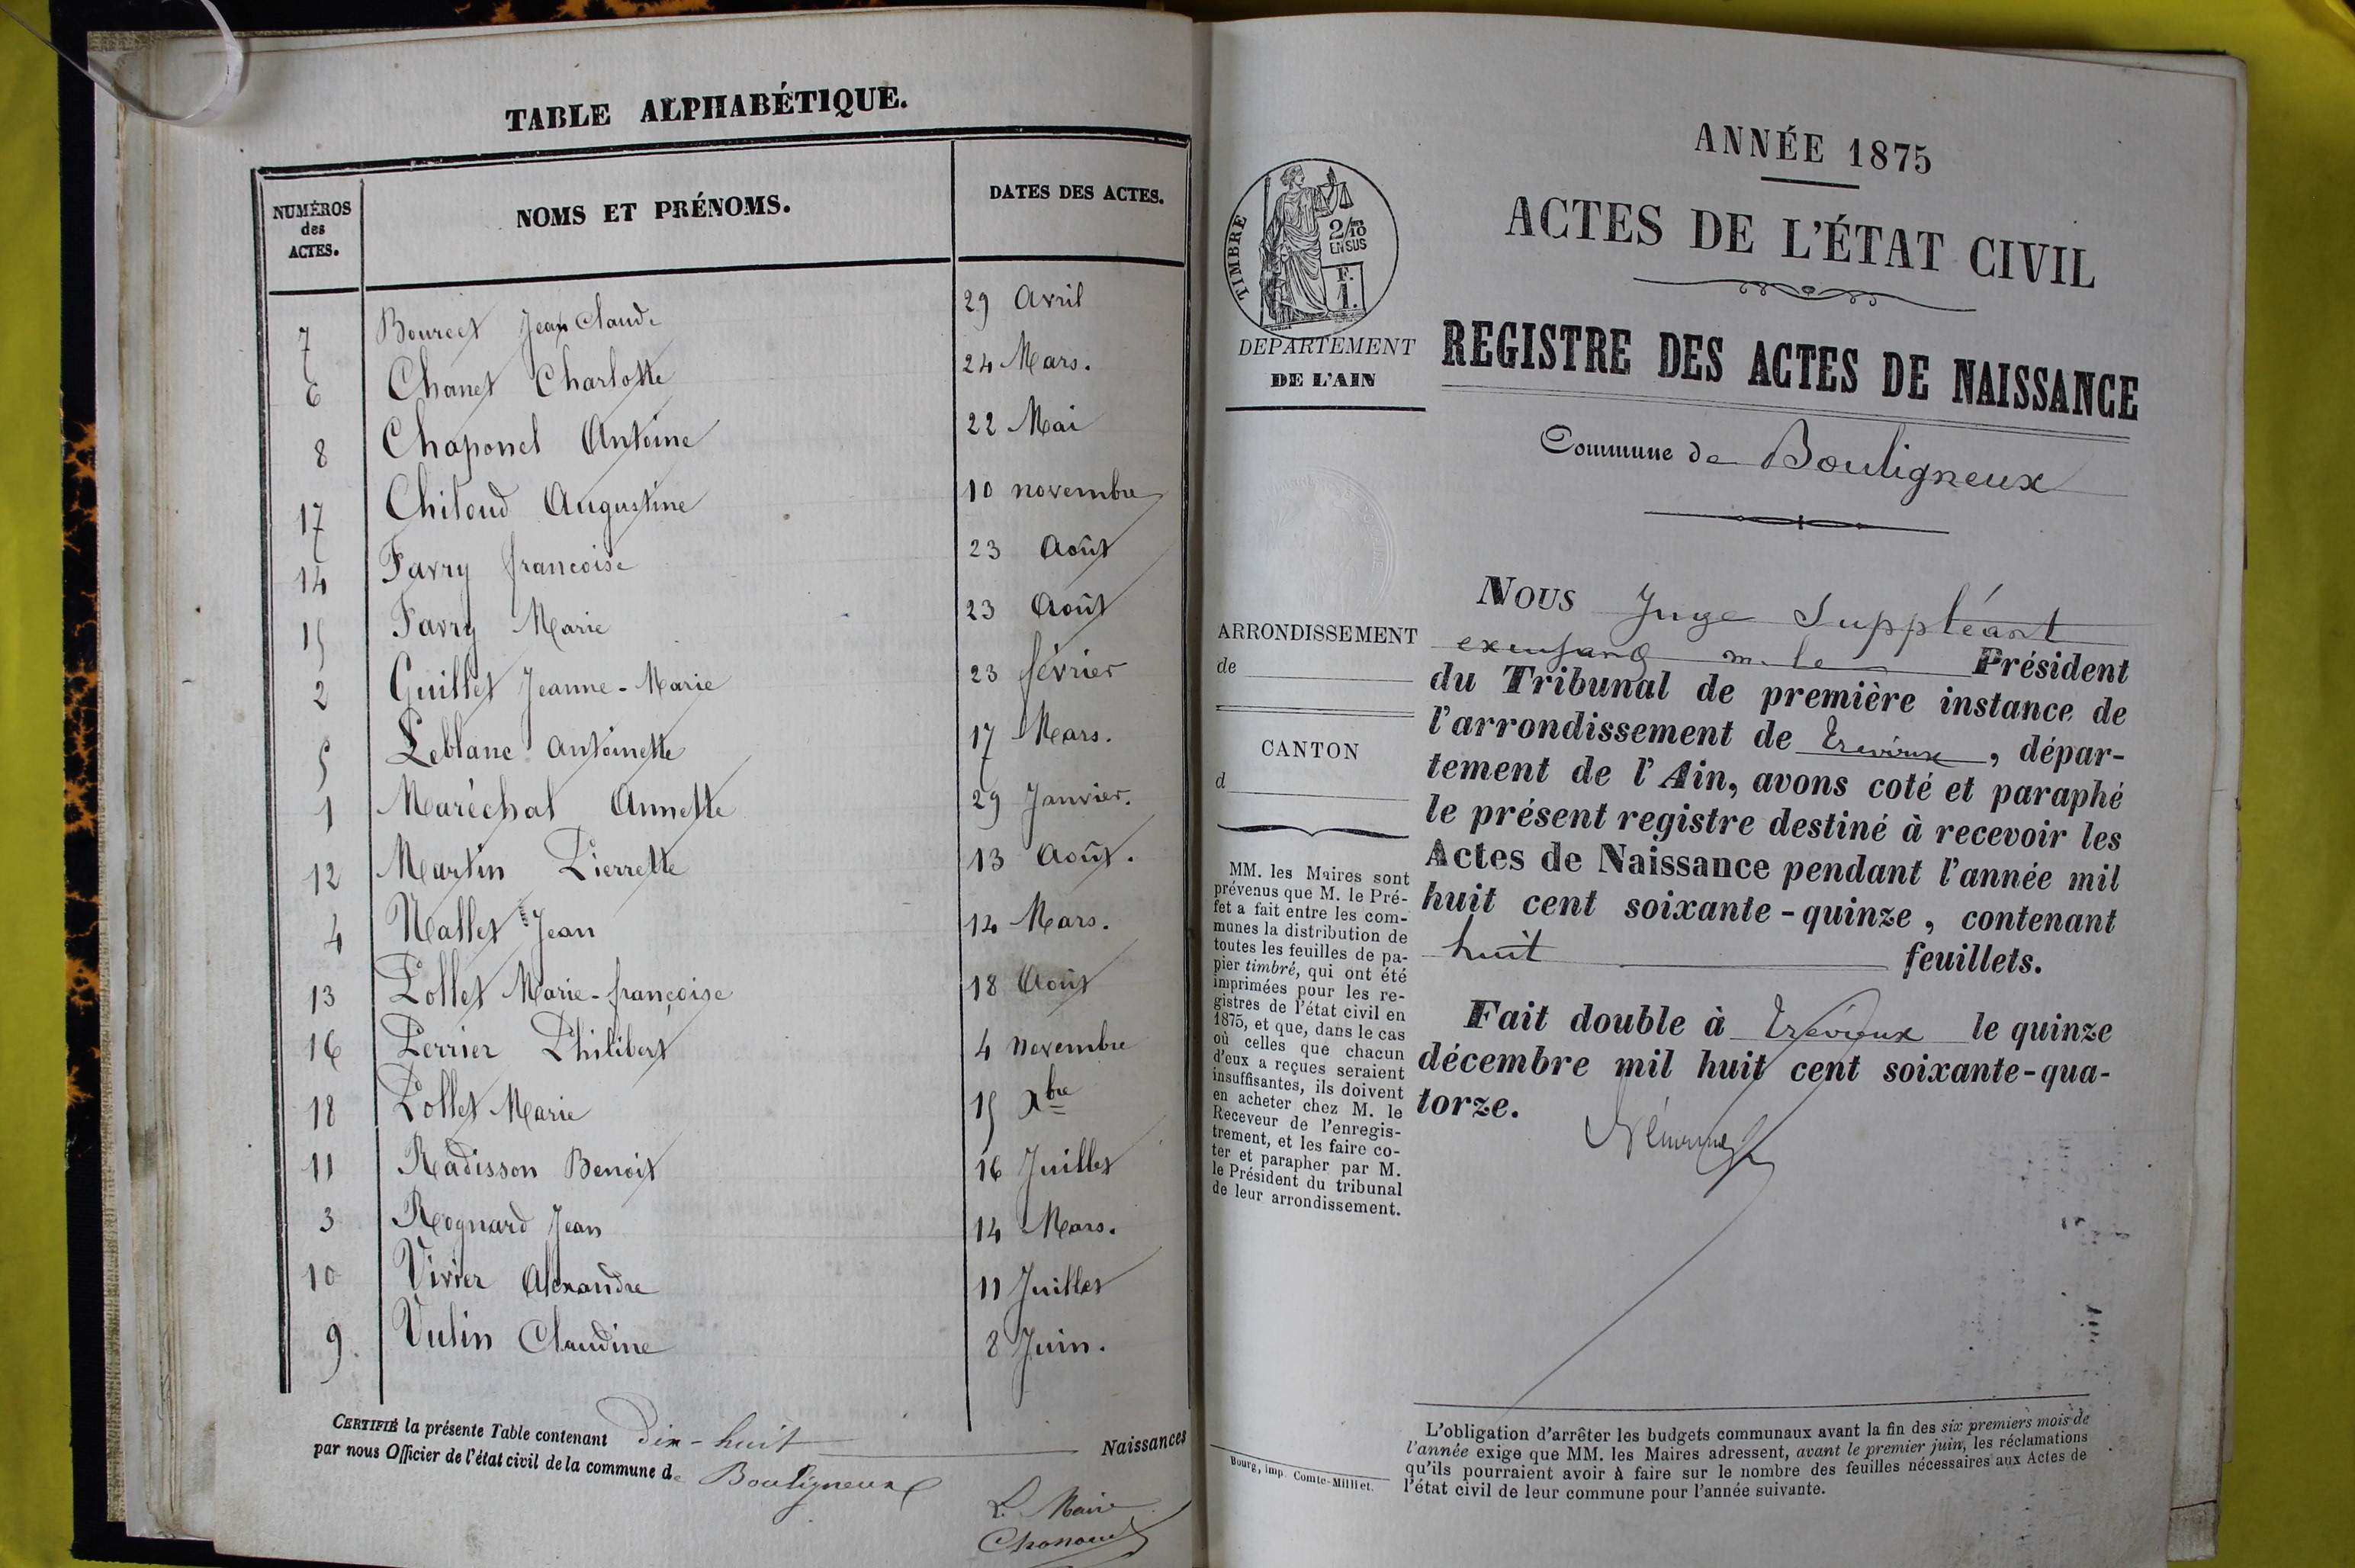 TABLE ALPHABÉTIQUE.
NUMÉROS des ACTES.
NOMS ET PRÉNOMS.
DATES DES ACTES.
7 Bourcet Jean Claude 29 Avril
6 Chanet Charlotte 24 Mars.
8 Chaponel Antoine 22 Mai
17 Chiloud Augustine 10 novembre
14 Favry francoise 23 Août
15 Favry Marie 23 Août
2 Guillet Jeanne-Marie 23 février
5 Leblanc Antoinette 17 Mars.
1 Maréchal Annette 29 Janvier.
12 Martin Pierrette 13 Août.
4 Nallet Jean 14 Mars.
13 Pollet Marie-françoise 18 Août
16 Perrier Philibert 4 novembre
18 Pollet Marie 15 Xbre
11 Radisson Benoit 16 Juillet
3 Rognard Jean 14 Mars.
10 Vivier Alexandre 11 Juillet
9. Vulin Claudine 8 Juin.
CERTIFIÉ la présente Table contenant dix-huit Naissances
par nous Officier de l'état civil de la commune de Bouligneux
Le Maire
ANNÉE 1875
ACTES DE L'ÉTAT CIVIL
TIMBRE
2/10
EN SUS
F.
1.
DEPARTEMENT
DE L'AIN
REGISTRE DES ACTES DE NAISSANCE
Commune de Bouligneux
ARRONDISSEMENT
de
CANTON
d
MM. les Maires sont
prévenus que M. le Pré-
fet a fait entre les com-
munes la distribution de
toutes les feuilles de pa-
pier timbré, qui ont été
imprimées pour les re-
gistres de l'état civil en
1875, et que, dans le cas
où celles que chacun
d'eux a reçues seraient
insuffisantes, ils doivent
en acheter chez M. le
Receveur de l'enregis-
trement, et les faire co-
ter et parapher par M.
le Président du tribunal
de leur arrondissement.
NOUS Juge Suppléant
m. le Président
du Tribunal de première instance de
l'arrondissement de Trévoux, dépar-
tement de l'Ain, avons coté et paraphé
le présent registre destiné à recevoir les
Actes de Naissance pendant l'année mil
huit cent soixante-quinze, contenant
huit feuillets.
Fait double à Trévoux le quinze
décembre mil huit cent soixante-qua-
torze.
L'obligation d'arrêter les budgets communaux avant la fin des six premiers mois de
l'année exige que MM. les Maires adressent, avant le premier juin, les réclamations
qu'ils pourraient avoir à faire sur le nombre des feuilles nécessaires aux Actes de
l'état civil de leur commune pour l'année suivante.
Bourg, imp. Comte-Milliet.